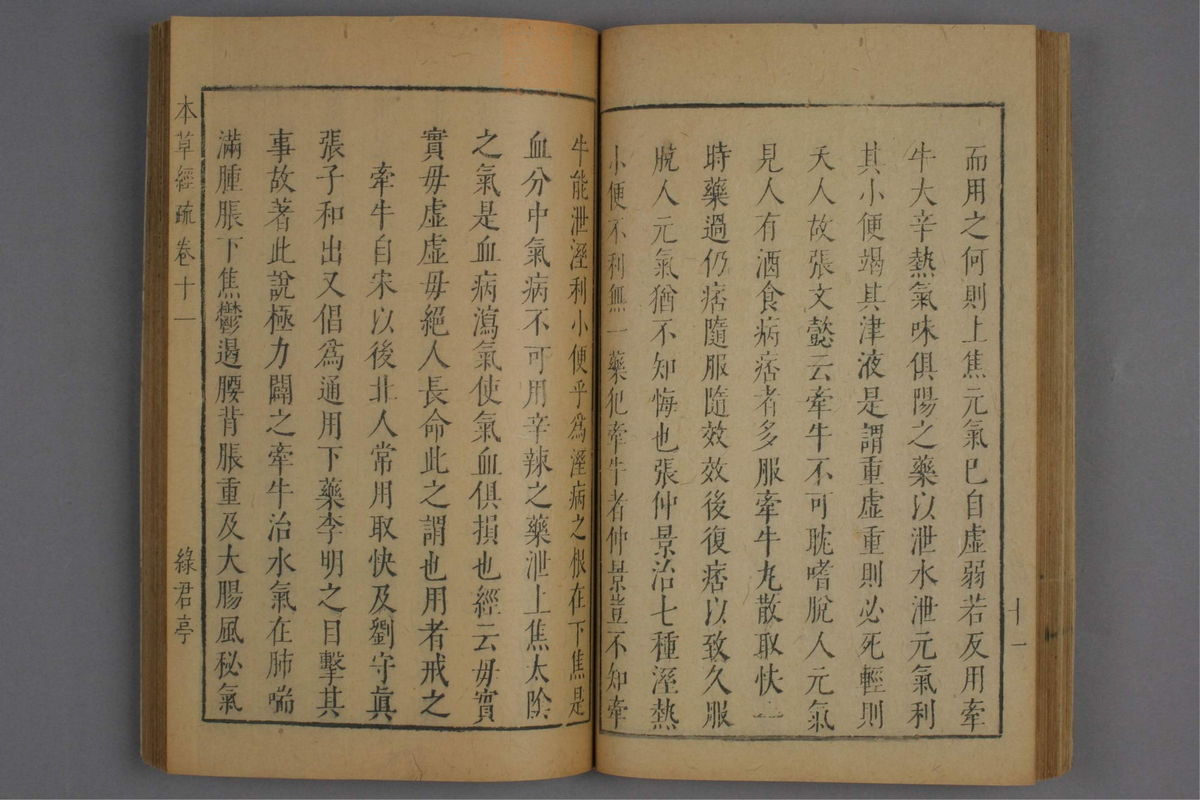 而用之何則上焦元氣已自虛弱若反用牽
牛大辛熱氣味俱陽之藥以泄水泄元氣利
其小便竭其津液是謂重虛重則必死輕則
夭人故張文懿云牽牛不可耽嗜脫人元氣
見人有酒食病痞者多服牽牛丸散取快一
時藥過仍痞隨服隨效效後復痞以致久服
脫人元氣猶不知悔也張仲景治七種溼熱
小便不利無一藥犯牽牛者仲景豈不知牽
十一
牛能泄溼利小便乎爲溼病之根在下焦是
血分中氣病不可用辛辣之藥泄上焦太陰
之氣是血病瀉氣使氣血俱損也經云毋實
實毋虛虛毋絕人長命此之謂也用者戒之
牽牛自宋以後北人常用取快及劉守眞
張子和出又倡爲通用下藥李明之目擊其
事故著此說極力闢之牽牛治水氣在肺喘
滿腫脹下焦鬱遏腰背脹重及大腸風秘氣
本草經疏 卷十一
綠君亭